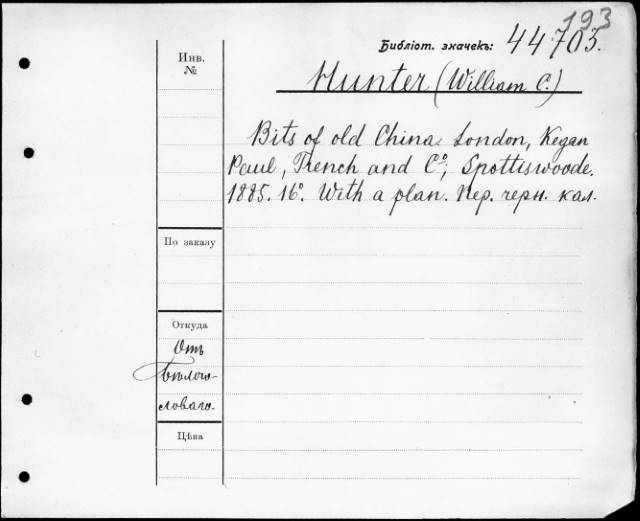 193
Библіот. значекъ: 44.703.
Инв. №
Hunter (William C.)
Bits of old China. London, Kegan
Paul, Trench and Cº; Spottiswoode.
1885. 16º. With a plan. Пер. черн. кал.
По заказу
Откуда
Отъ
Бѣлого-
ловаго.
Цѣна